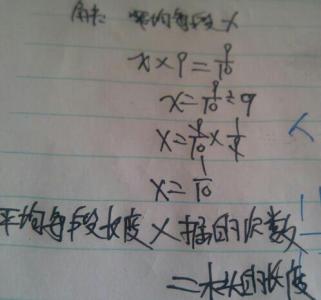 解: 平均每段 x
x × 9 = 9/10
x = 9/10 ÷ 9
x = 9/10 × 1/9
x = 1/10
平均每段长度 × 据的次数
= 木头的长度